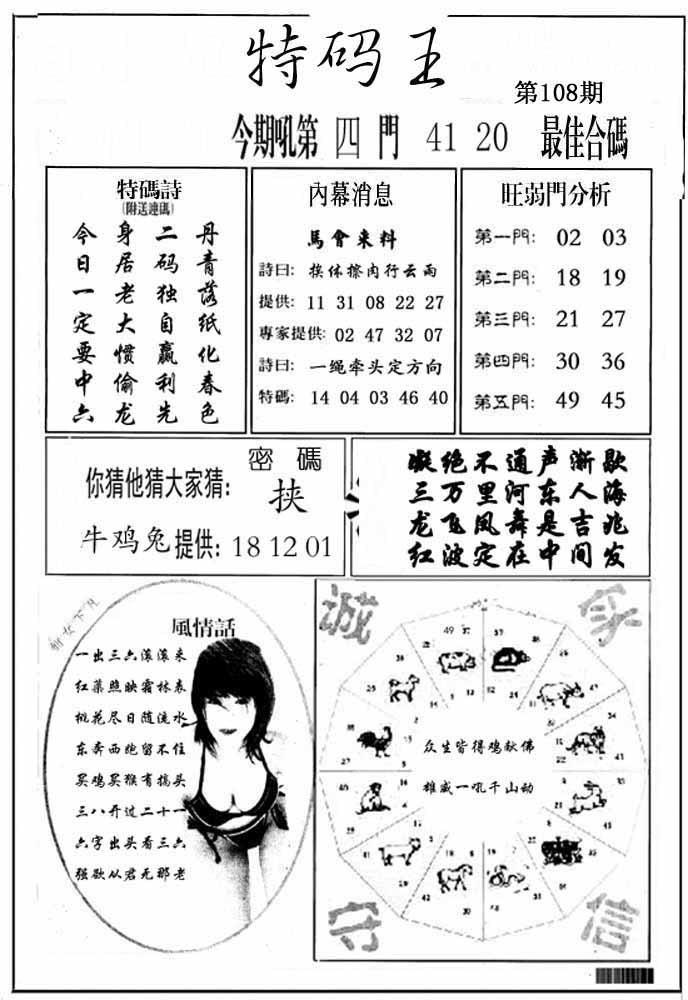 特码王
第108期
今期吼第四門 41 20 最佳合碼
特碼詩
(附送連碼)
丹青落纸化春色
二码独自赢利先
身居老大惯偷龙
今日一定要中六
內幕消息
馬會来料
詩曰: 挨休擦肉行云雨
提供: 11 31 08 22 27
專家提供: 02 47 32 07
詩曰: 一绳牵头定方向
特碼: 14 04 03 46 40
旺弱門分析
第一門: 02 03
第二門: 18 19
第三門: 21 27
第四門: 30 36
第五門: 49 45
密碼
你猜他猜大家猜: 挟
牛鸡兔提供: 18 12 01
凝绝不通声渐歇
三万里河东人海
龙飞凤舞是吉兆
红波定在中间发
風情話
一出三六滚滚来
红叶照映霜林表
桃花尽日随流水
东奔西跑留不住
买鸡买猴有搞头
三八开过二十一
六字出头看三六
强欲从君无那老
诚
家
守
信
众生皆得鸡献佛
雄威一吼千山动